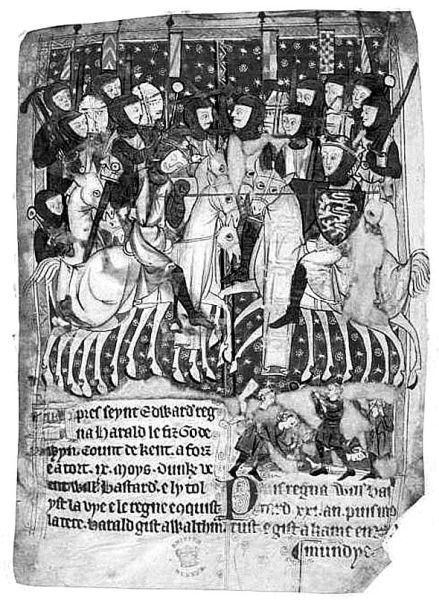 pres seynt Edward reg
na Harald le fiz Gode
wyn. Count de kent. a forz
e a tort. ix. moys. Dunke ve
ent Will. Bastard. e ly tol
yst la vye e le regne e cõquist
la tere. Harald gist a Walthm
Puis regna Will. Bas
tard. xxi. an. puis mo
rust e gist a kame en
rmundye